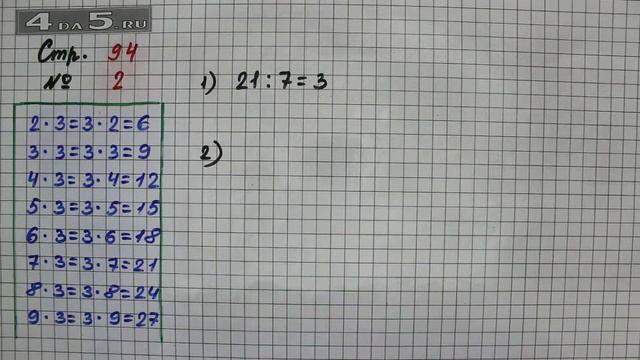 4 DA 5.RU
Стр. 94
№ 2
2·3=3·2=6
3·3=3·3=9
4·3=3·4=12
5·3=3·5=15
6·3=3·6=18
7·3=3·7=21
8·3=3·8=24
9·3=3·9=27
1) 21:7=3
2)